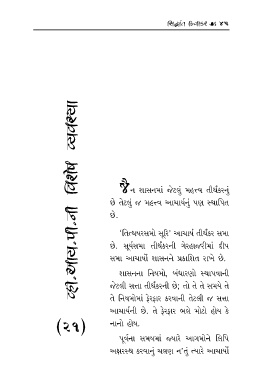 સિદ્ધાંત દિવાકર ૪૫
વ્હી.આય.પી.ની વિશેષ વ્યવસ્થા
(૨૧)
જૈન શાસનમાં જેટલું મહત્ત્વ તીર્થંકરનું
છે તેટલું જ મહત્ત્વ આચાર્યનું પણ સ્થાપિત
છે.
‘તિત્થયરસમો સૂરિ’ આચાર્ય તીર્થંકર સમા
છે. સૂર્યસમા તીર્થંકરની ગેરહાજરીમાં દીપ
સમા આચાર્યો શાસનને પ્રકાશિત રાખે છે.
શાસનના નિયમો, બંધારણો સ્થાપવાની
જેટલી સત્તા તીર્થંકરની છે; તો તે તે સમયે તે
તે નિયમોમાં ફેરફાર કરવાની તેટલી જ સત્તા
આચાર્યની છે. તે ફેરફાર ભલે મોટો હોય કે
નાનો હોય.
પૂર્વના સમયમાં જ્યારે આગમોને લિપિ
અક્ષરસ્થ કરવાનું ચલણ ન’તું ત્યારે આચાર્યો